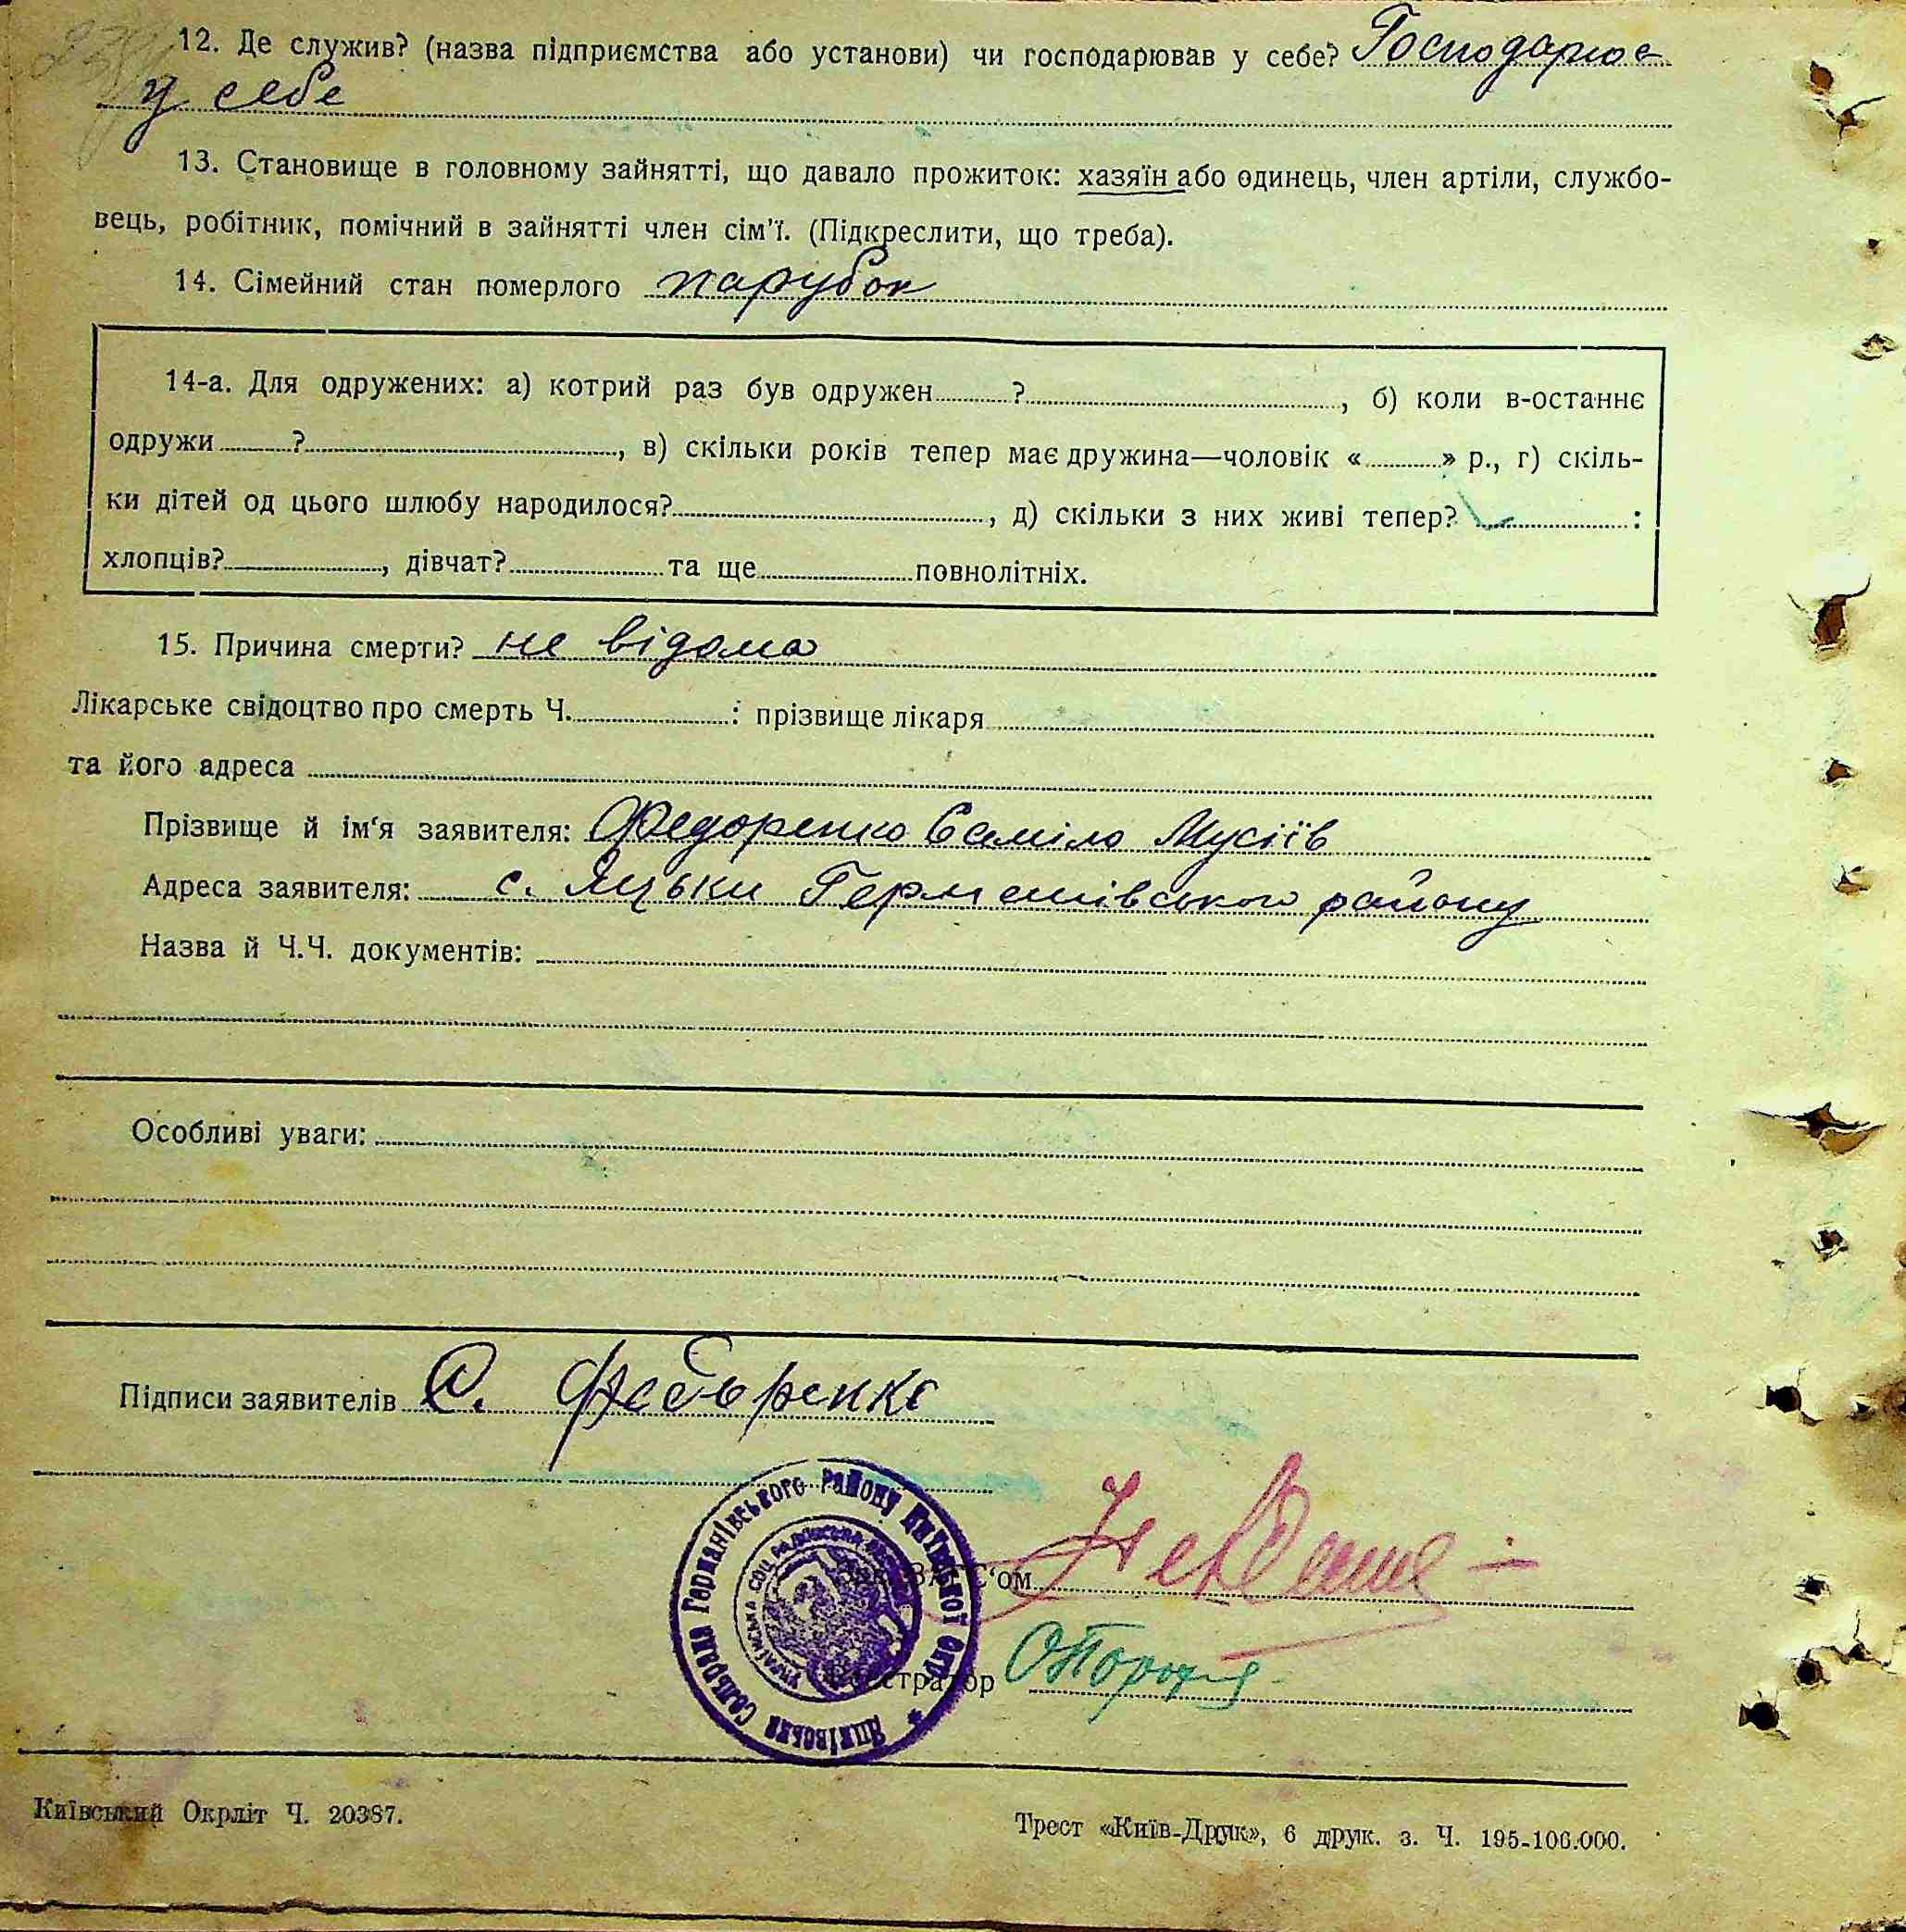 12. Де служив? (назва підприємства або установи) чи господарював у себе? Господарює
у себе
13. Становище в головному зайнятті, що давало прожиток: хазяїн або одинець, член артіли, службо-
вець, робітник, помічний в зайнятті член сім'ї. (Підкреслити, що треба).
14. Сімейний стан померлого парубок
14-а. Для одружених: а) котрий раз був одружен ? , б) коли в-останнє
одружи ? , в) скільки років тепер має дружина—чоловік « » р., г) скіль-
ки дітей од цього шлюбу народилося? , д) скільки з них живі тепер? :
хлопців? , дівчат? та ще повнолітніх.
15. Причина смерти? не відома
Лікарське свідоцтво про смерть Ч. : прізвище лікаря
та його адреса
Прізвище й ім'я заявителя: Федоренко Саміло Мусіїв
Адреса заявителя: с. Яцьки Германівського району
Назва й Ч.Ч. документів:
Особливі уваги:
Підписи заявителів С. Федоренко
Яцківська Сельрада Германівського району Київської Окр.
УКРАЇНСЬКА СОЦ. РАДЯНСЬКА
ЗАГС'ом
Реєстратор
Київський Окрліт Ч. 20387.
Трест «Київ-Друк», 6 друк. з. Ч. 195-106.000.